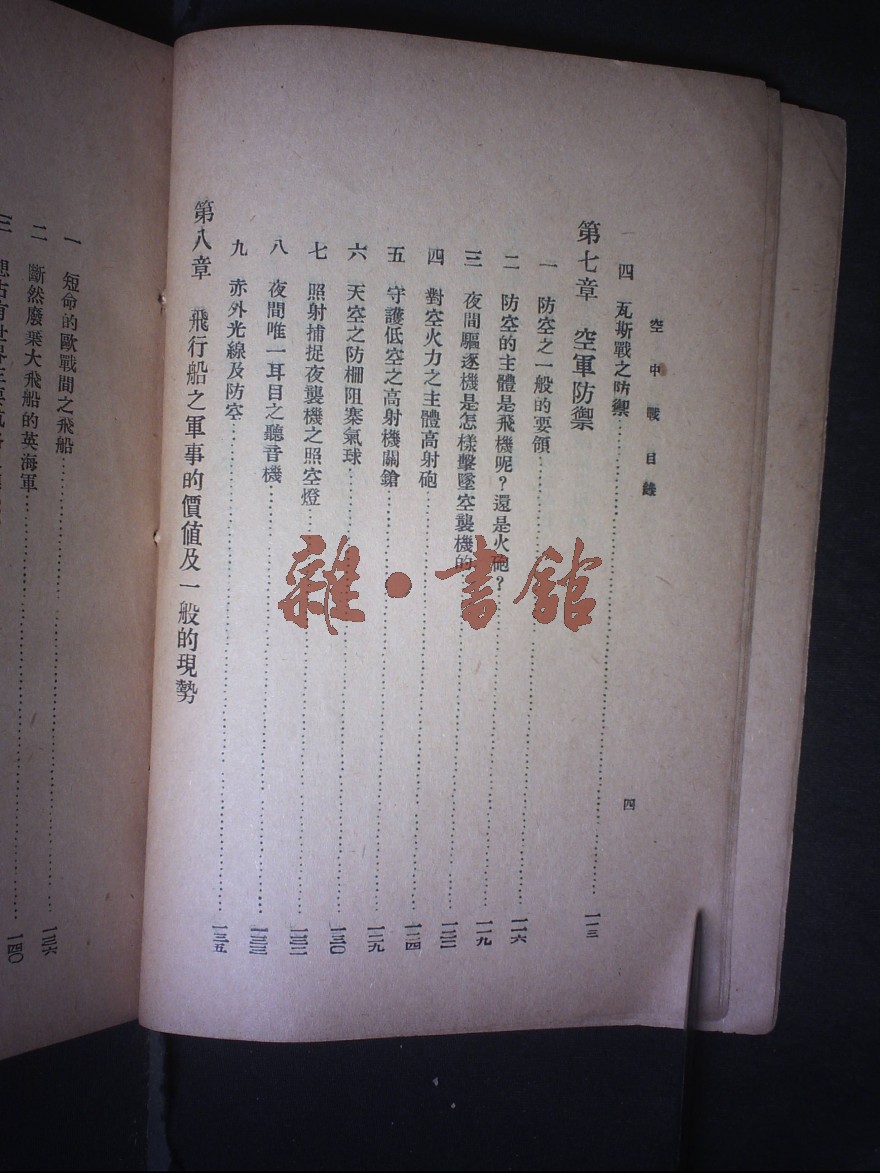 空中戰目錄
四
四 瓦斯戰之防禦 一一三
第七章 空軍防禦
一 防空之一般的要領 一一六
二 防空的主體是飛機呢?還是火砲? 一一九
三 夜間驅逐機是怎樣擊墜空襲機的 一二二
四 對空火力之主體高射砲 一二四
五 守護低空之高射機關鎗 一二九
六 天空之防柵阻塞氣球 一三〇
七 照射捕捉夜襲機之照空燈 一三二
八 夜間唯一耳目之聽音機 一三三
九 赤外光線及防空 一三五
第八章 飛行船之軍事的價值及一般的現勢
一 短命的歐戰間之飛船 一三六
二 斷然廢棄大飛船的英海軍 一四〇
三
雜·書館